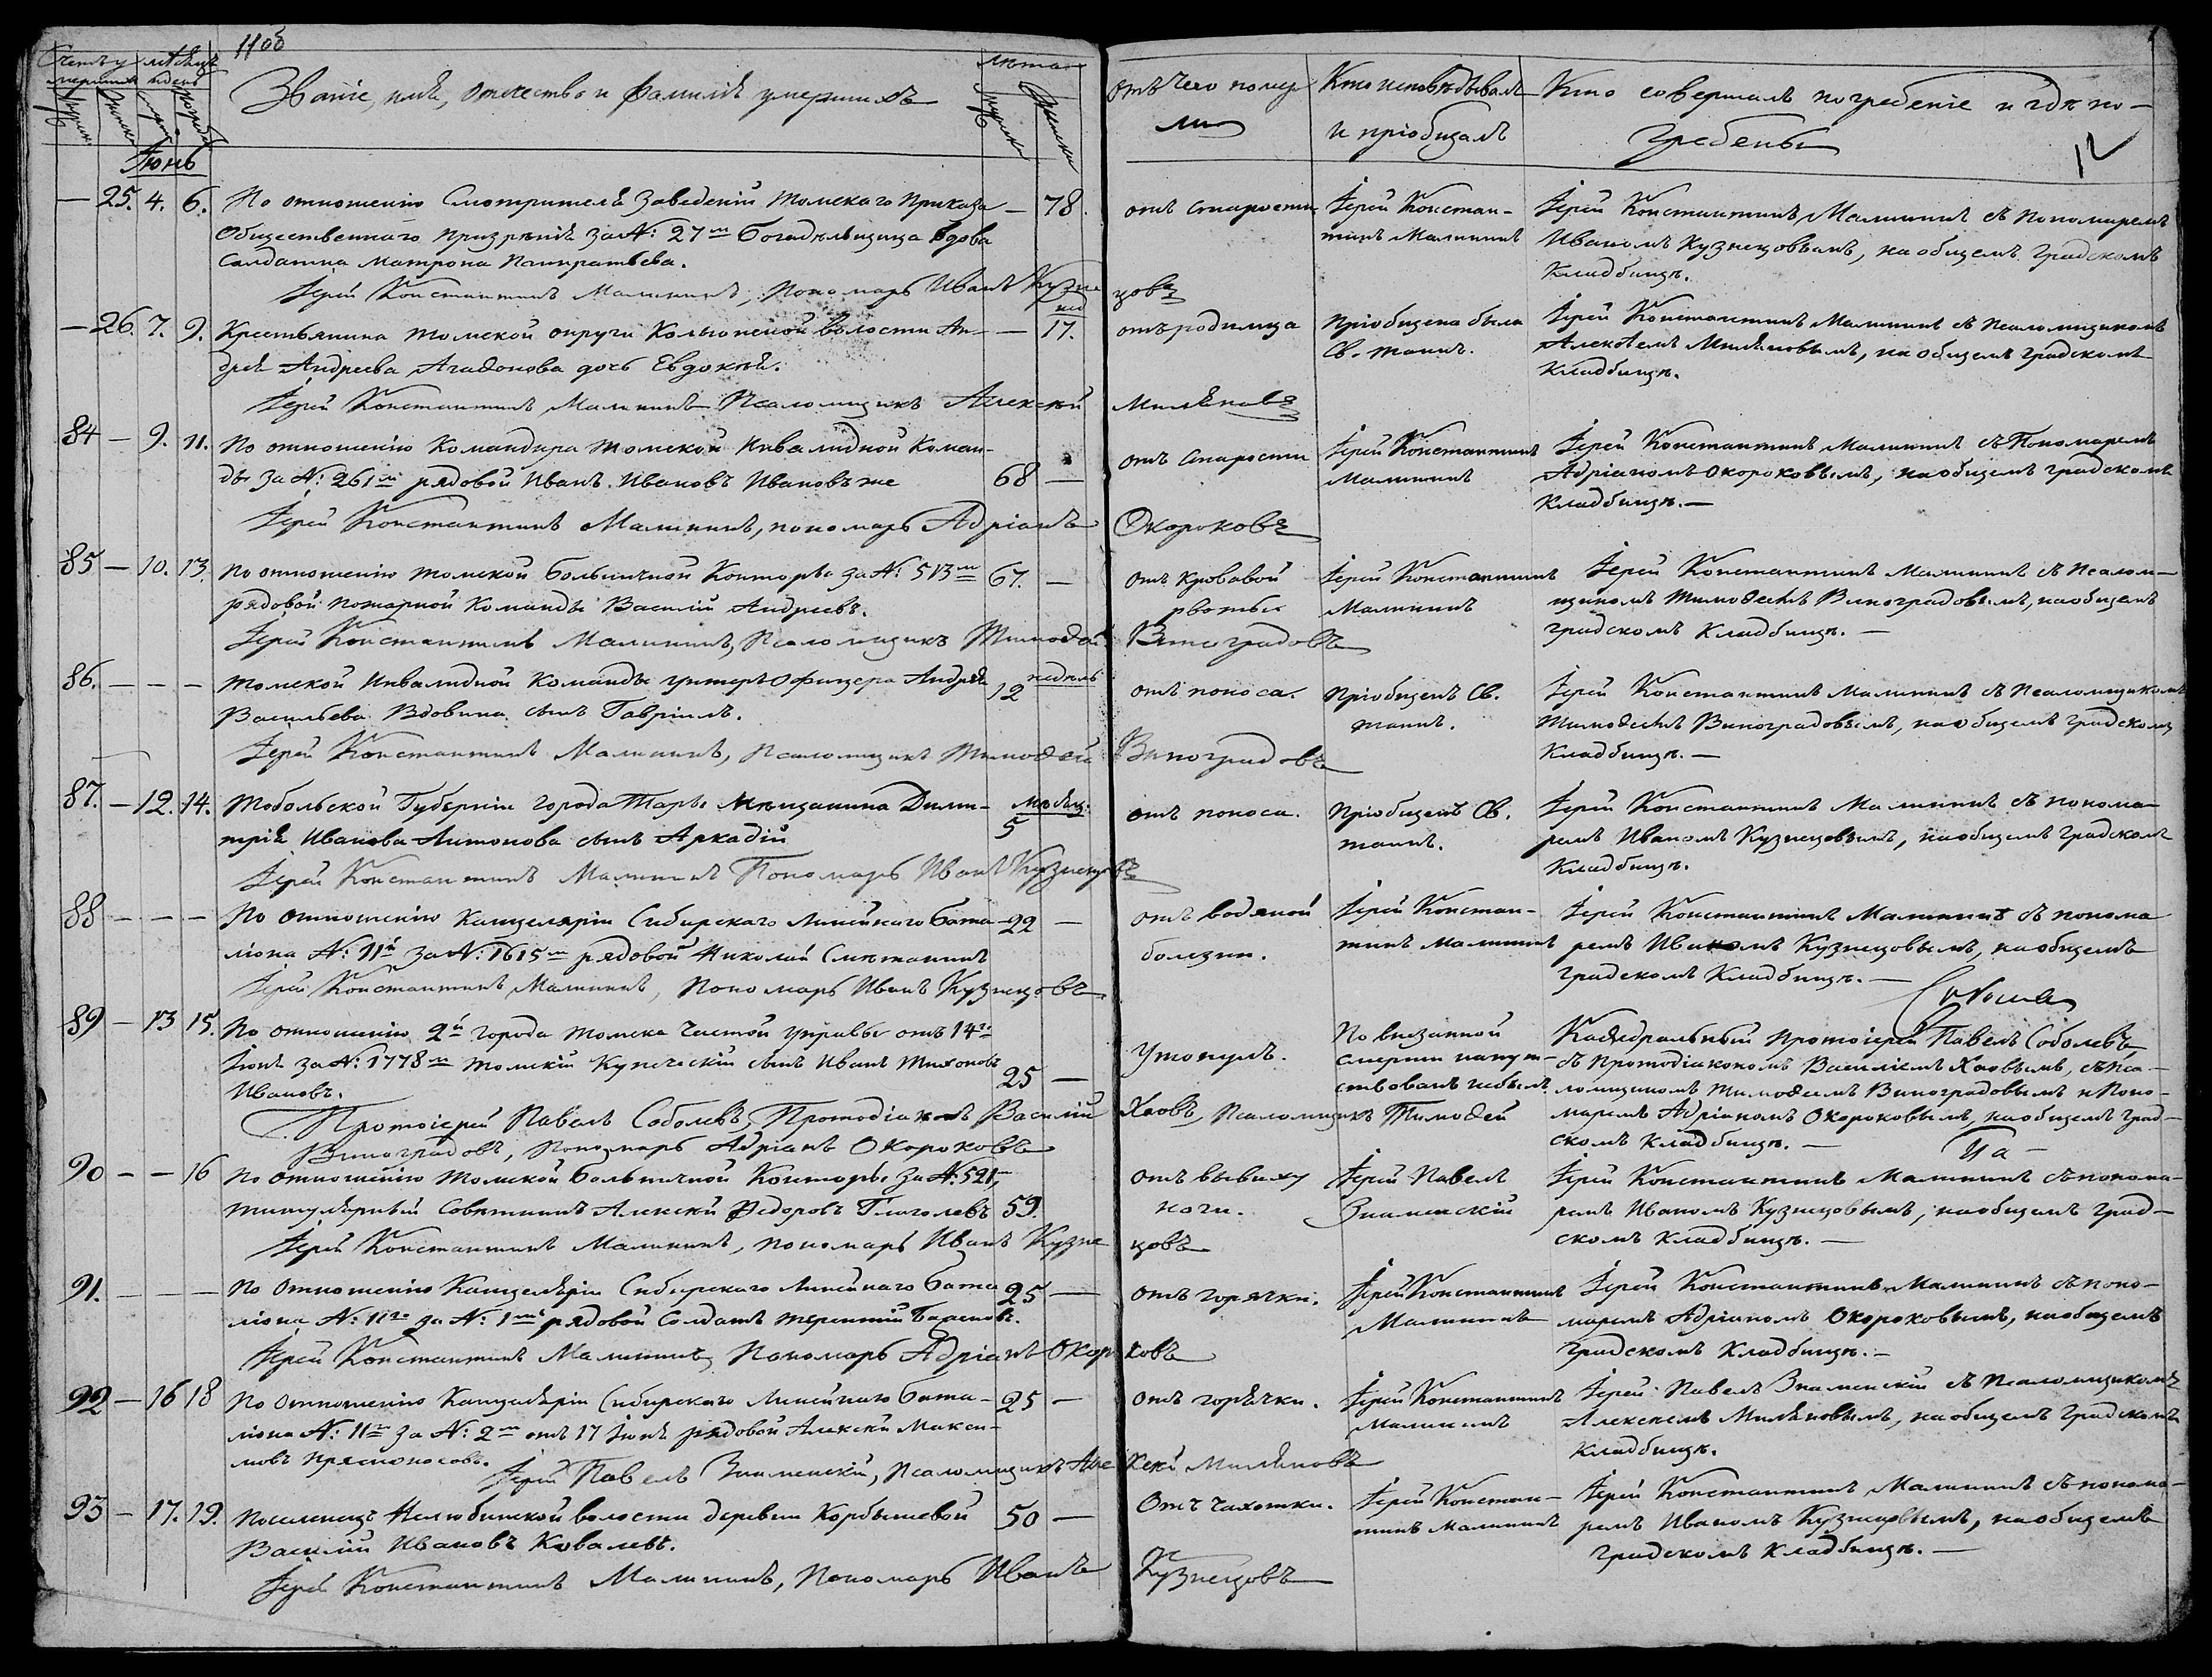 11об
Счетъ умершихъ
мѣсяцъ и день
Званіе, имя, отечество и фамилія умершихъ
Лѣта
Отъ чего померли
Кто исповѣдывалъ и пріобщалъ
Кто совершалъ погребеніе и гдѣ погребены
12
Іюнь
— 25. 4. 6. По отношенію Смотрителя Заведеній Томскаго Приказа — 78. отъ старости Іерей Констан- Іерей Константинъ Малининъ съ Пономаремъ
Общественнаго Призрѣнія за №: 27м богадѣльщица вдова тинъ Малининъ Иваномъ Кузнецовымъ, на общемъ градскомъ
Солдатка Матрона Панкратьева. Кладбищѣ.
Іерей Константинъ Малининъ, Пономарь Иванъ Кузнецовъ
— 26. 7. 9. Крестьянина Томской округи волости Ан- — 17. отъ родимца Пріобщена была Іерей Константинъ Малининъ съ псаломщикомъ
дрея Андреева Агафонова дочь Евдокія. Св. таинъ. Алексѣемъ Миляновымъ, на общемъ градскомъ
Кладбищѣ.
Іерей Константинъ Малининъ Псаломщикъ Алексѣй Миляновъ
84 — 9. 11. По отношенію Командира Томской Инвалидной Коман- отъ старости Іерей Константинъ Іерей Константинъ Малининъ съ Пономаремъ
ды за №: 261м рядовой Иванъ Ивановъ Ивановъ же 68 — Малининъ Адріаномъ Окороковымъ, на общемъ градскомъ
Кладбищѣ. —
Іерей Константинъ Малининъ, пономарь Адріанъ Окороковъ
85 — 10. 13. По отношенію Томской Больничной Конторы за №: 513м 67. — Отъ кровавой Іерей Константинъ Іерей Константинъ Малининъ съ Псалом-
рядовой пожарной Команды Василій Андреевъ. рвоты Малининъ щикомъ Тимофеемъ Виноградовымъ, на общемъ
градскомъ Кладбищѣ. —
Іерей Константинъ Малининъ, Псаломщикъ Тимофей Виноградовъ
86. — — — Томской Инвалидной Команды унтеръ Офицера Андрея недѣль 12 отъ поноса. Пріобщенъ Св. Іерей Константинъ Малининъ съ Псаломщикомъ
Васильева Вдовина сынъ Гавріилъ. таинъ. Тимофеемъ Виноградовымъ, на общемъ градскомъ
Кладбищѣ. —
Іерей Константинъ Малининъ, псаломщикъ Тимофей Виноградовъ
87. — 12. 14. Тобольской Губерніи города Тары Мѣщанина Дими- мѣсяц. 5 отъ поноса. Пріобщенъ Св. Іерей Константинъ Малининъ съ понома-
трія Иванова Антонова сынъ Аркадій таинъ. ремъ Иваномъ Кузнецовымъ, на общемъ градскомъ
Кладбищѣ.
Іерей Константинъ Малининъ Пономарь Иванъ Кузнецовъ
88 — — — По отношенію Канцеляріи Сибирскаго Линейнаго бата- 22 — отъ водяной Іерей Констан- Іерей Константинъ Малининъ съ понома
ліона №: 11й за №: 1615м рядовой Николай Сметанинъ болезни. тинъ Малининъ ремъ Иваномъ Кузнецовымъ, на общемъ
градскомъ Кладбищѣ. —
Іерей Константинъ Малининъ, Пономарь Иванъ Кузнецовъ
89 — 13 15. По отношенію 2й города Томска Частой Управы отъ 14го Утонулъ. По внезапной Кафедральный Протоіерей Павелъ Соболевъ
Іюня за №: 1778м Томскій Купеческій сынъ Иванъ Тихоновъ 25 — смерти напут- съ Протодіакономъ Василіемъ Хаовымъ, съ пса-
Ивановъ. ствованъ небылъ ломщикомъ Тимофеемъ Виноградовымъ и Поно-
маремъ Адріаномъ Окороковымъ, на общемъ град-
скомъ кладбищѣ. —
Протоіерей Павелъ Соболевъ, Протодіаконъ Василій Хаовъ, Псаломщикъ Тимофей
Виноградовъ, Пономарь Адріанъ Окороковъ
90 — — 16 По отношенію Томской Больничной Конторы за №: 521м Отъ вывиху Іерей Павелъ Іерей Константинъ Малининъ съ понома-
титулярный Совѣтникъ Алексѣй Федоровъ Глаголевъ 59. ноги. Знаменскій ремъ Иваномъ Кузнецовымъ, на общемъ град-
скомъ Кладбищѣ. —
Іерей Константинъ Малининъ, пономарь Иванъ Кузнецовъ
91. — — — По отношенію Канцеляріи Сибирскаго Линейнаго бата 25 — Отъ горячки. Іерей Константинъ Іерей Константинъ Малининъ съ поно-
ліона №: 11го за №: 1м рядовой Солдатъ Терентій Малининъ маремъ Адріаномъ Окороковымъ, на общемъ
градскомъ Кладбищѣ. —
Іерей Константинъ Малининъ, Пономарь Адріанъ Окороковъ
92 — 16 18 По отношенію Канцеляріи Сибирскаго Линейнаго бата- 25 — отъ горячки. Іерей Константинъ Іерей Павелъ Знаменскій съ Псаломщикомъ
ліона №: 11го за №: 2м отъ 17 Іюня рядовой Алексѣй Макси- Малининъ Алексѣемъ Миляновымъ, на общемъ градскомъ
мовъ кладбищѣ.
Іерей Павелъ Знаменскій, Псаломщикъ Алексѣй Миляновъ
93 — 17. 19. Поселенецъ Нелюбинской волости деревни Корбышевой 50 — Отъ чахотки. Іерей Констан- Іерей Константинъ Малининъ съ понома-
Василій Ивановъ Ковалевъ. тинъ Малининъ ремъ Иваномъ Кузнецовымъ, на общемъ
градскомъ Кладбищѣ. —
Іерей Константинъ Малининъ, Пономарь Иванъ Кузнецовъ